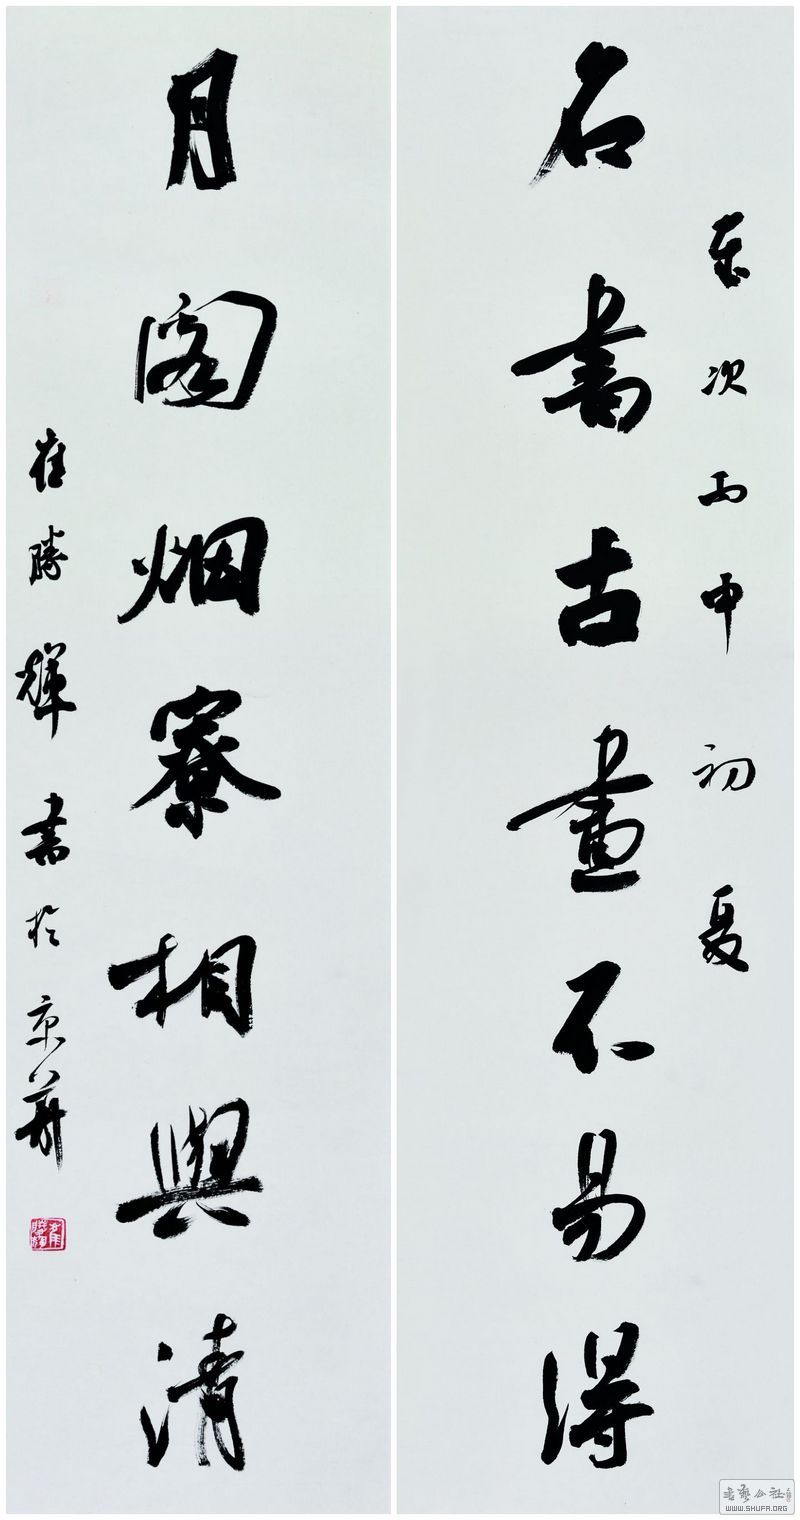 歲次丙申初夏
名書古畫不易得
月閣烟寮相與清
崔勝輝書於京華
書藝公社
WWW.SHUFA.ORG